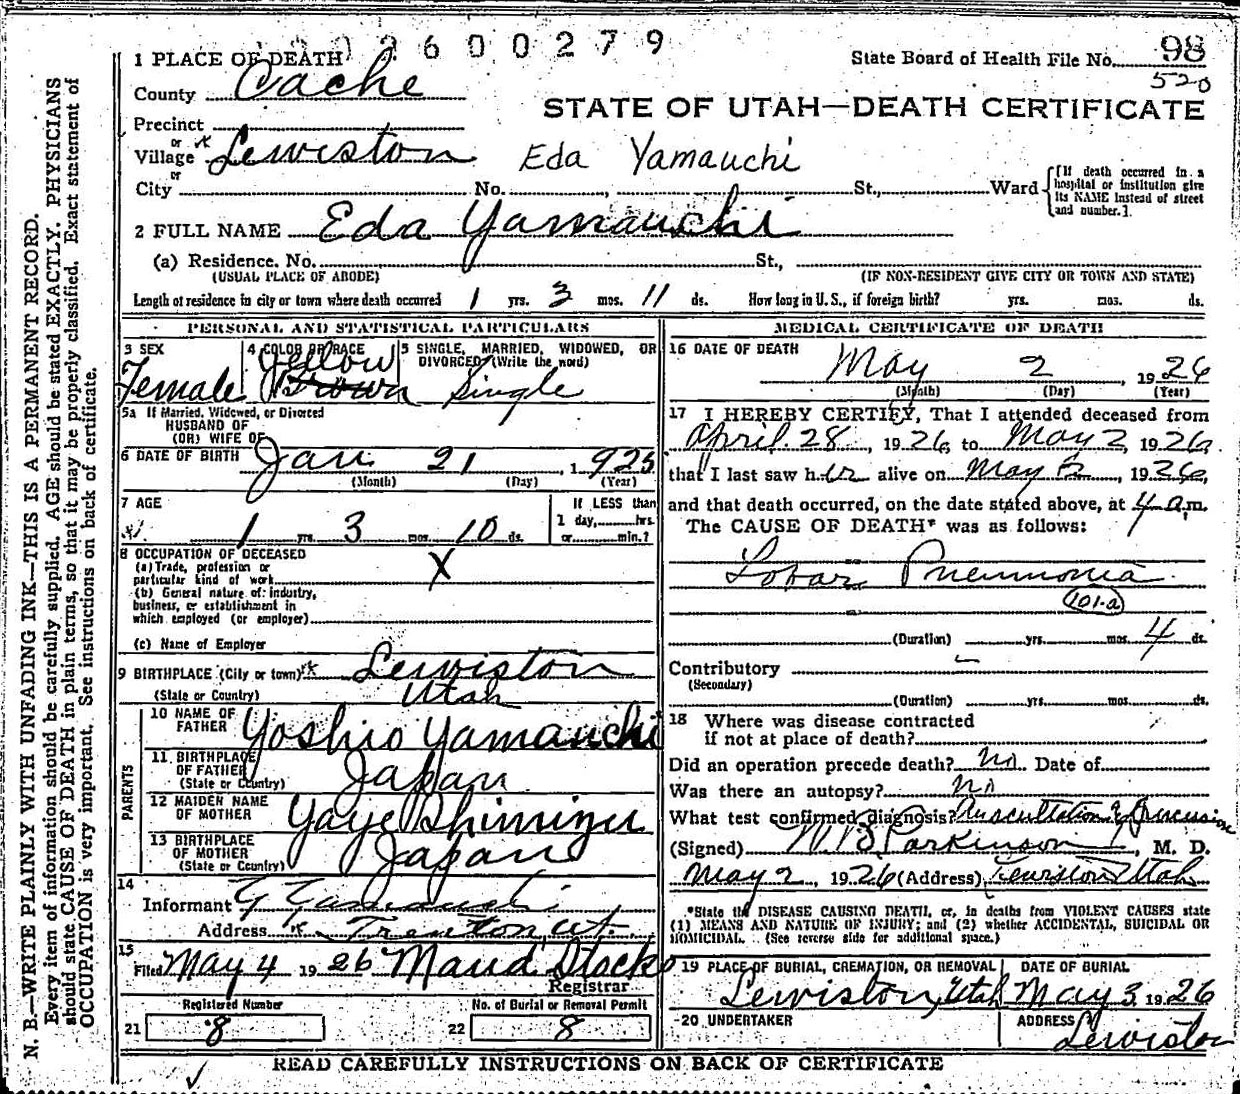 2600279
1 PLACE OF DEATH
State Board of Health File No. 98
520
County Cache
STATE OF UTAH—DEATH CERTIFICATE
Precinct
or
Village Lewiston Eda Yamauchi
or
City No. , St., Ward
[If death occurred in a hospital or institution give its NAME instead of street and number.].
2 FULL NAME Eda Yamauchi
(a) Residence. No. St.,
(USUAL PLACE OF ABODE) (IF NON-RESIDENT GIVE CITY OR TOWN AND STATE)
Length of residence in city or town where death occurred 1 yrs. 3 mos. 11 ds. How long in U. S., if foreign birth? yrs. mos. ds.
PERSONAL AND STATISTICAL PARTICULARS
3 SEX Female
4 COLOR OR RACE Yellow Brown
5 SINGLE, MARRIED, WIDOWED, OR DIVORCED (Write the word) Single
5a If Married, Widowed, or Divorced
HUSBAND OF
(OR) WIFE OF
6 DATE OF BIRTH Jan 21, 1925
(Month) (Day) (Year)
7 AGE
1 yrs. 3 mos. 10 ds.
If LESS than
1 day, hrs.
or min.?
8 OCCUPATION OF DECEASED
(a) Trade, profession or
particular kind of work X
(b) General nature of industry,
business, or establishment in
which employed (or employer)
(c) Name of Employer
9 BIRTHPLACE (City or town) Lewiston
(State or Country) Utah
PARENTS
10 NAME OF FATHER Yoshio Yamauchi
11 BIRTHPLACE OF FATHER (State or Country) Japan
12 MAIDEN NAME OF MOTHER Yaye Shimizu
13 BIRTHPLACE OF MOTHER (State or Country) Japan
14
Informant Y Yamauchi
Address Trenton, Ut.
15
Filed May 4 1926 Maud Stocks
Registrar
Registered Number
21 8
No. of Burial or Removal Permit
22 8
MEDICAL CERTIFICATE OF DEATH
16 DATE OF DEATH
May 2 1926
(Month) (Day) (Year)
17 I HEREBY CERTIFY, That I attended deceased from
April 28, 1926, to May 2, 1926,
that I last saw her alive on May 2, 1926,
and that death occurred, on the date stated above, at 4 a.m.
The CAUSE OF DEATH* was as follows:
Lobar Pneumonia
101-a
(Duration) yrs. mos. 4 ds.
Contributory
(Secondary)
(Duration) yrs. mos. ds.
18 Where was disease contracted
if not at place of death?
Did an operation precede death? No. Date of
Was there an autopsy? No
What test confirmed diagnosis? Auscultation & Percussion
(Signed) W. B. Parkinson, M. D.
May 2, 1926 (Address) Lewiston Utah
*State the DISEASE CAUSING DEATH, or, in deaths from VIOLENT CAUSES state
(1) MEANS AND NATURE OF INJURY; and (2) whether ACCIDENTAL, SUICIDAL OR
HOMICIDAL. (See reverse side for additional space.)
19 PLACE OF BURIAL, CREMATION, OR REMOVAL DATE OF BURIAL
Lewiston, Utah May 3, 1926
20 UNDERTAKER ADDRESS
Lewiston
READ CAREFULLY INSTRUCTIONS ON BACK OF CERTIFICATE
N. B.—WRITE PLAINLY WITH UNFADING INK—THIS IS A PERMANENT RECORD.
Every item of information should be carefully supplied. AGE should be stated EXACTLY. PHYSICIANS
should state CAUSE OF DEATH in plain terms, so that it may be properly classified. Exact statement of
OCCUPATION is very important. See instructions on back of certificate.